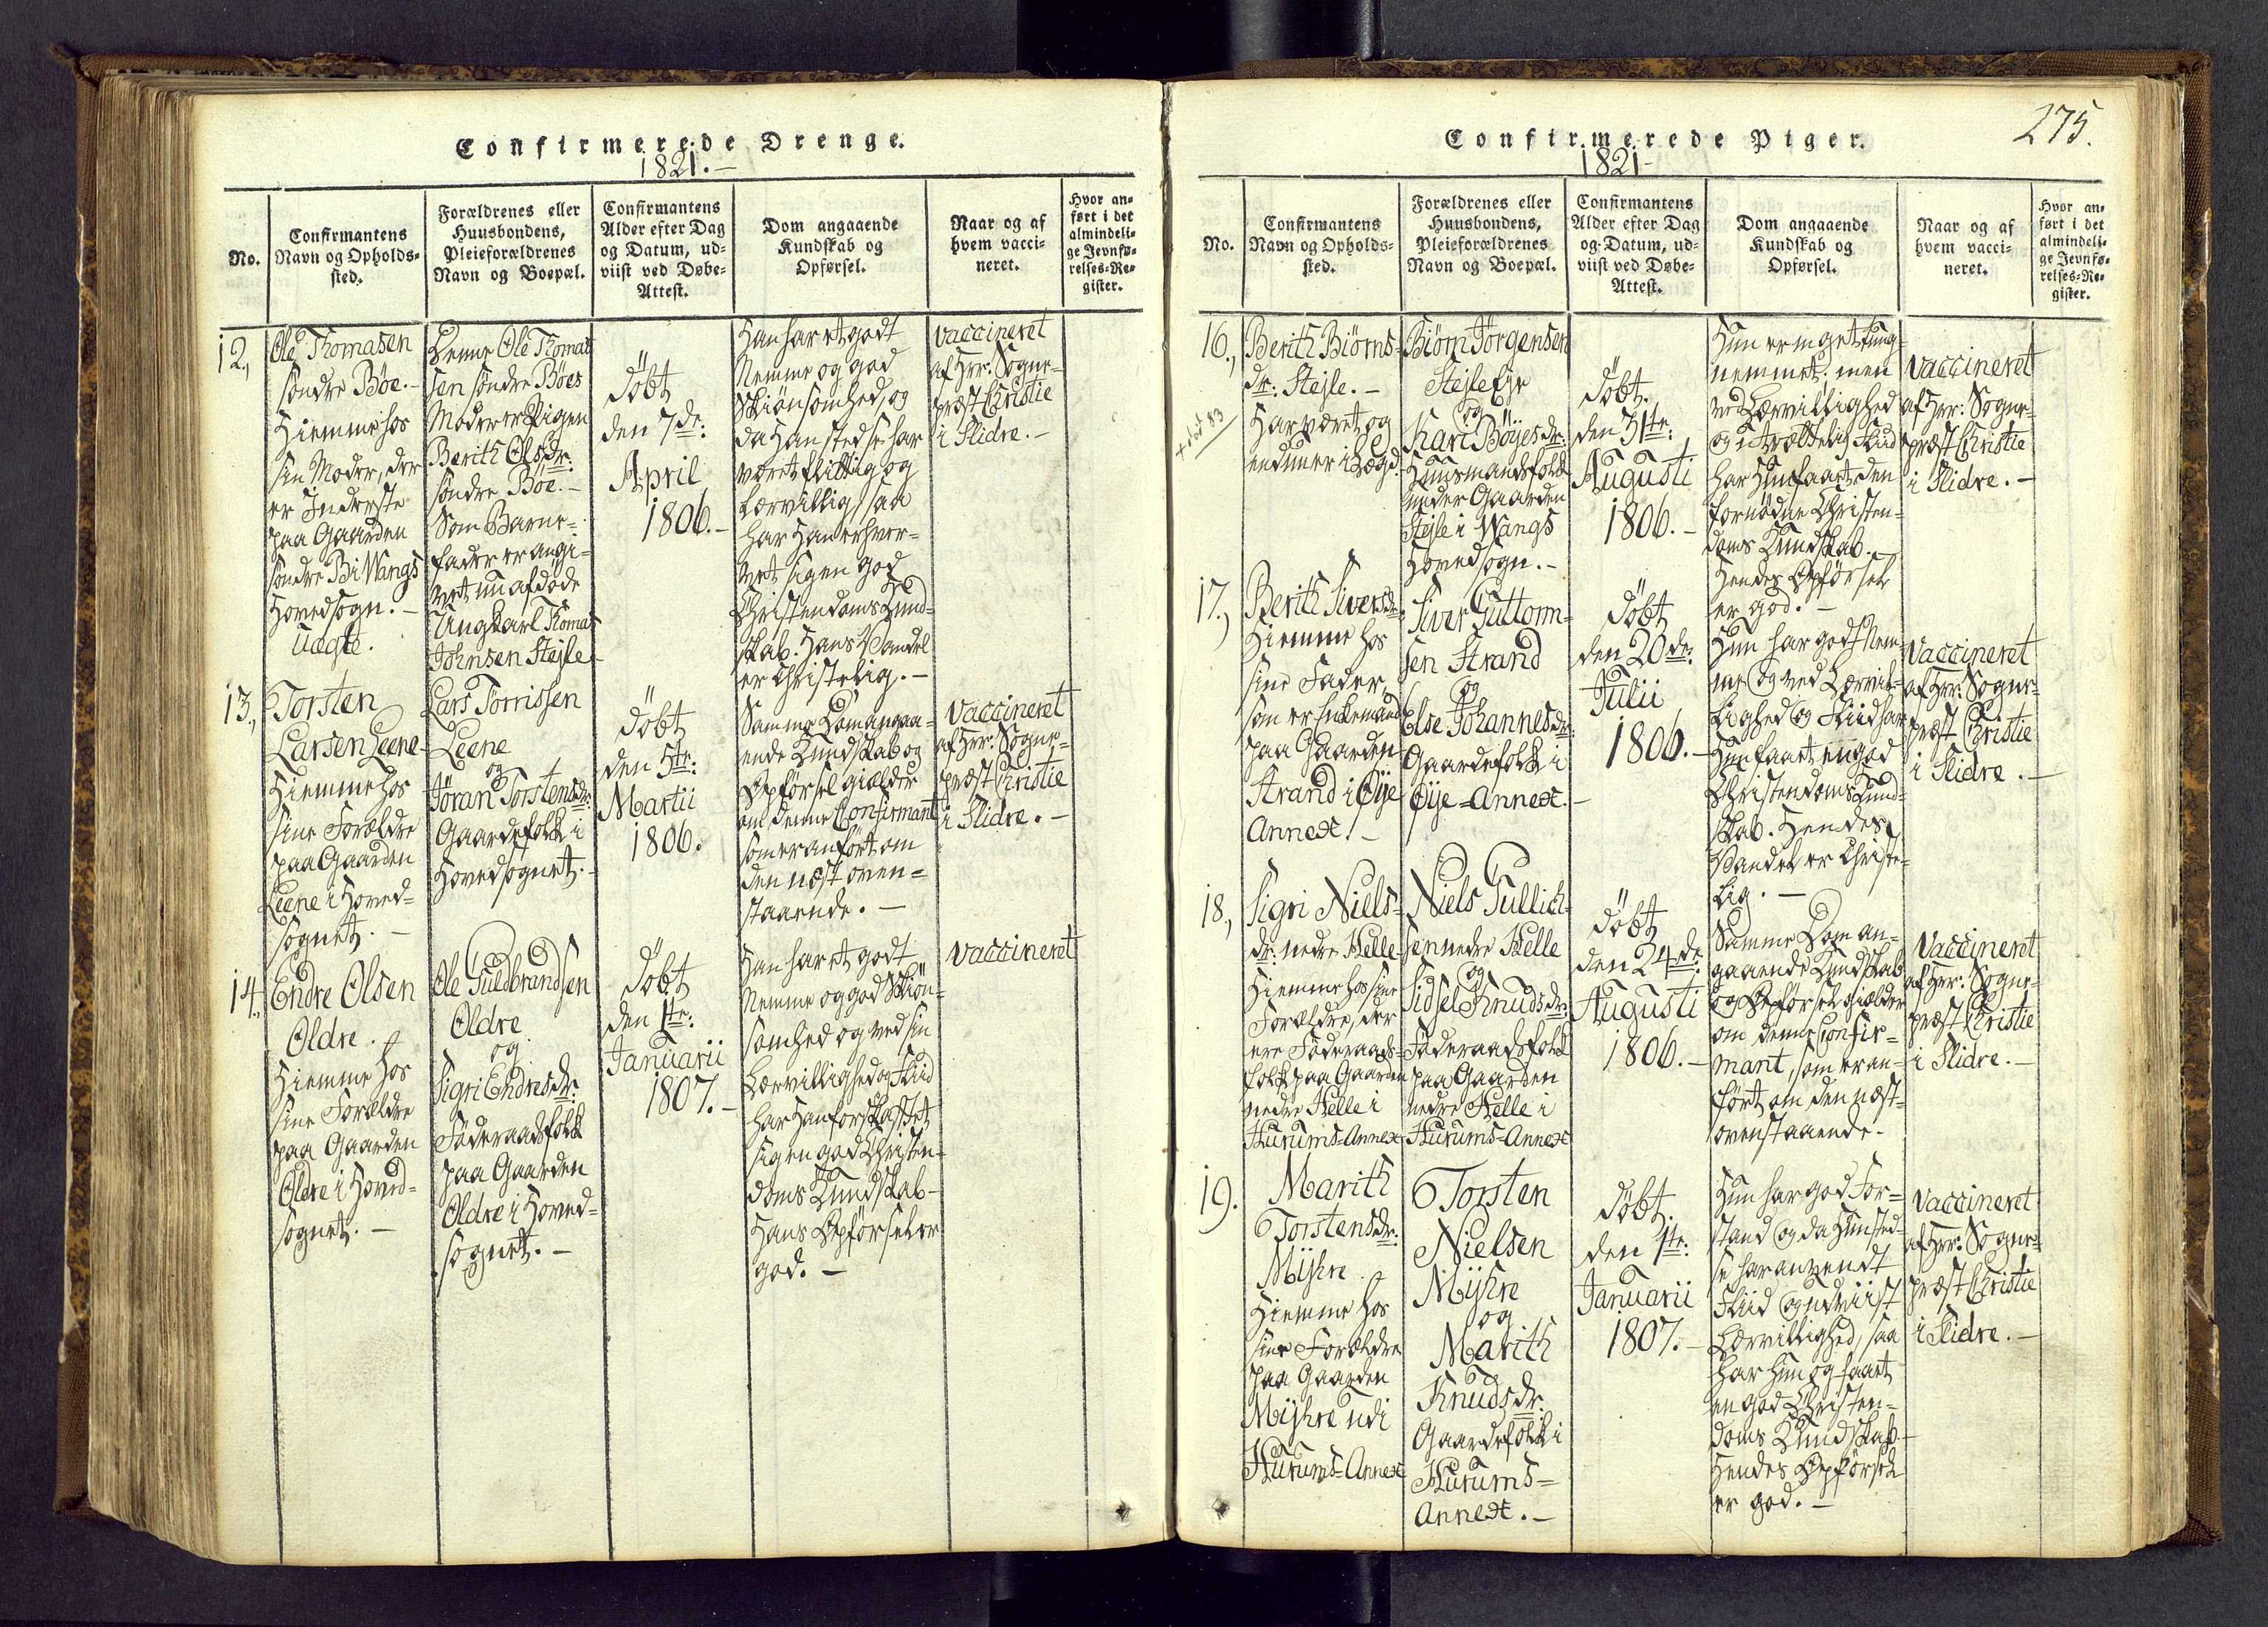 Confirmerede Drenge.
1821.-
No.
Confirmantens
Navn og Opholds-
sted.
Forældrenes eller
Huusbondens,
Pleieforældrenes
Navn og Boepæl.
Confirmantens
Alder efter Dag
og Datum, ud-
viist ved Døbe-
Attest.
Dom angaaende
Kundskab og
Opførsel.
Naar og af
hvem vacci-
neret.
Hvor an-
ført i det
almindeli-
ge Jevnfø-
relses-Re-
gister.
12.,
Ole Thomasen
söndre Böe.-
Hiemme hos
sin Moder, der
er Inderste
paa Gaarden
söndre B: i Wangs
Hovedsogn.-
Uægte.
Denne Ole Thomas
sen söndre Böes
Moder er Pigen
Berith Olsdr:
söndre Böe.-
Som Barne-
fader er angi-
vet nu afdöde
Ungkarl Thomas
Johnsen Stejle
döbt
den 7de:
April
1806.-
Han har et godt
Nemme og god
Skiönsomhed, og
da Han stedse har
været flittig og
lærvillig, saa
har Han erhver-
vet sig en god
Christendoms Kund-
skab. Hans Vandel
er Christelig.-
vaccineret
af Hrr: Sogne-
præst Christie
i Slidre.-
13.,
Torsten
Larsen Leene
Hiemme hos
sine Forældre
paa Gaarden
Leene i Hoved-
sognet.-
Lars Torrissen
Leene
og
Jöran Torstensdr:
Gaardefolk i
Hovedsognet.-
döbt
den 5te:
Martii
1806.
Samme Dom angaa-
ende Kundskab og
Opförsel gielder
om denne Confirmant
som er anfört om
den næst oven-
staaende.-
vaccineret
af Hrr: Sogne-
præst Christie
i Slidre.-
14.,
Endre Olsen
Öldre.
Hiemme hos
sine Forældre
paa Gaarden
Öldre i Hoved-
sognet.-
Ole Guldbrandsen
Öldre
og
Sigri Endresdr:
Föderaadsfolk
paa Gaarden
Öldre i Hoved-
sognet.-
döbt
den 1te:
Januarii
1807.-
Han har et godt
Nemme og god Skiön-
somhed og ved sin
Lærvillighed og Fliid
har Han forskaffet
sig en god Christen-
doms Kundskab-
Hans Opförsel er
god.-
vaccineret
275.
Confirmerede Piger.
1821-
No.
Confirmantens
Navn og Opholds-
sted.
Forældrenes eller
Huusbondens,
Pleieforældrenes
Navn og Boepæl.
Confirmantens
Alder efter Dag
og Datum, ud-
viist ved Døbe-
Attest.
Dom angaaende
Kundskab og
Opførsel.
Naar og af
hvem vacci-
neret.
Hvor an-
ført i det
almindeli-
ge Jevnfø-
relses-Re-
gister.
16.,
Berith Biörns-
dr: Stejle.-
Har været og
endnu er i Lægd.
Biörn Jörgensen
Stejle Eje
og
Kari Böyesdr:
Huusmandsfolk
under Gaarden
Stejle i Wangs
Hovedsogn.-
döbt.
den 31te:
Augusti
1806.-
Hun er meget tung-
nemmet; men
ved Lærvillighed
og utrættelig Fliid
har Hun faaet den
fornödne Christen-
doms Kundskab.
Hendes Opförsel
er god.-
vaccineret
af Hrr: Sogne-
præst Christie
i Slidre.-
17.,
Berith Siversdr:
Hiemme hos
sine Fader,
som er Enkemand
paa Gaarden
Strand i Öÿe
Annex.-
Siver Guttorm-
sen Strand
og
Else Johannesdr:
Gaardefolk i
Öÿe-Annex.-
döbt
den 20de:
Julii
1806.-
Hun har godt Nem-
me og ved Lærvil-
lighed og Fliid har
Hun faaet en god
Christendoms Kund-
skab. Hendes
Vandel er Christe-
lig.-
vaccineret
af Hrr: Sogne-
præst Christie
i Slidre.-
18.,
Sigri Niels-
dr: nedre Helle
Hiemme hos sine
Forældre, der
ere Föderaads-
folk paa Gaarden
nedre Helle i
Hurums-Annex
Niels Gullich-
sen nedre Helle
og
Sidsel Knudsdr:
Föderaadsfolk
paa Gaarden
nedre Helle i
Hurums-Annex
döbt
den 24de:
Augusti
1806.-
Samme Dom an-
gaaende Kundskab
og Opförsel gielder
om denne Confir-
mant, som er an-
fört om den næst-
ovenstaaende.-
vaccineret
af Hrr: Sogne-
præst Christie
i Slidre.-
19.
Marith
Torstensdr:
Mÿhre.
Hiemme hos
sine Forældre
paa Gaarden
Mÿhre udi
Hurums-Annex
Torsten
Nielsen
Mÿhre
og
Marith
Knudsdr:
Gaardefolk i
Hurums-
Annex.-
döbt.
den 1te:
Januarii
1807.-
Hun har god For-
stand og da Hun sted-
se har anvendt
Fliid og udviist
Lærvillighed, saa
har Hun og faaet
en god Christen-
doms Kundskab-
Hendes Opförsel
er god.-
vaccineret
af Hrr: Sogne-
præst Christie
i Slidre.-